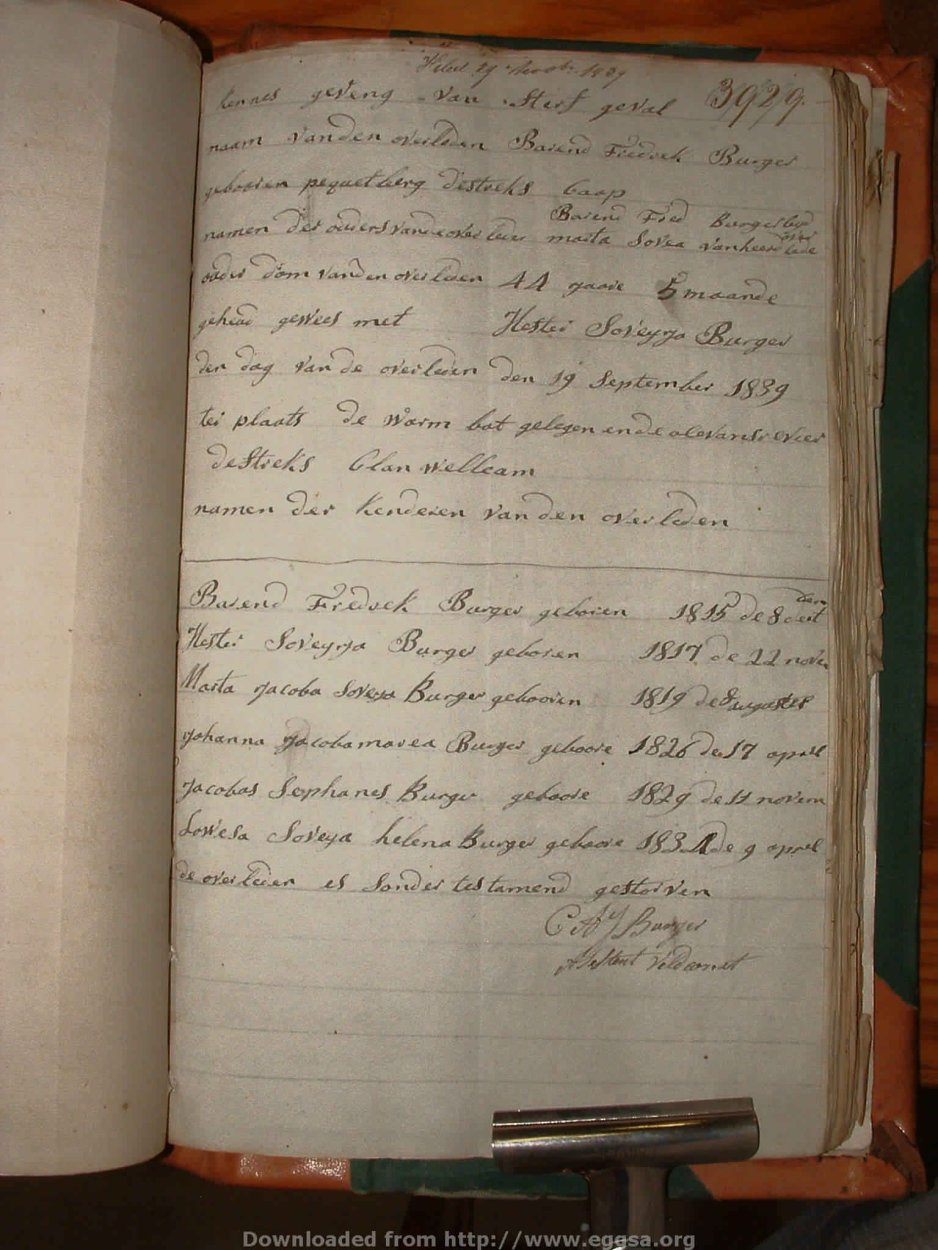 Filed 29 Novbr 1839
kennes geveng van Sterf geval 3929.
naam vanden overleden Barend Fredrek Burger
gebooren pequetberg destreks Caap
Barend Fred Burger
namen der ouders vande overleden marta Sovea van heerde
ouder dom vanden overleden 44 yaare 5 maande
geheud gewees met Hester Soveyya Burger
den dag van de overleden den 19 September 1839
ter plaats de warm bat gelegen en de olevansrevier
destreks Clan welleam
namen der kenderen van den overleden
Barend Fredrek Burger geboren 1815 de 8
Hester Soveyya Burger geboren 1817 de 22 novem
Marta yacoba Soveya Burger gebooren 1819 de 8 augustes
yohanna yacoba marea Burger geboore 1826 de 17 aprel
yacobas Sephanes Burger geboore 1829 de 11 novem
Lowesa Soveya helena Burger geboore 183 de 9 aprel
de overleden es sonder testamend gestorven
C A J Burger
Assistent Veldcornet
Downloaded from http://www.eggsa.org